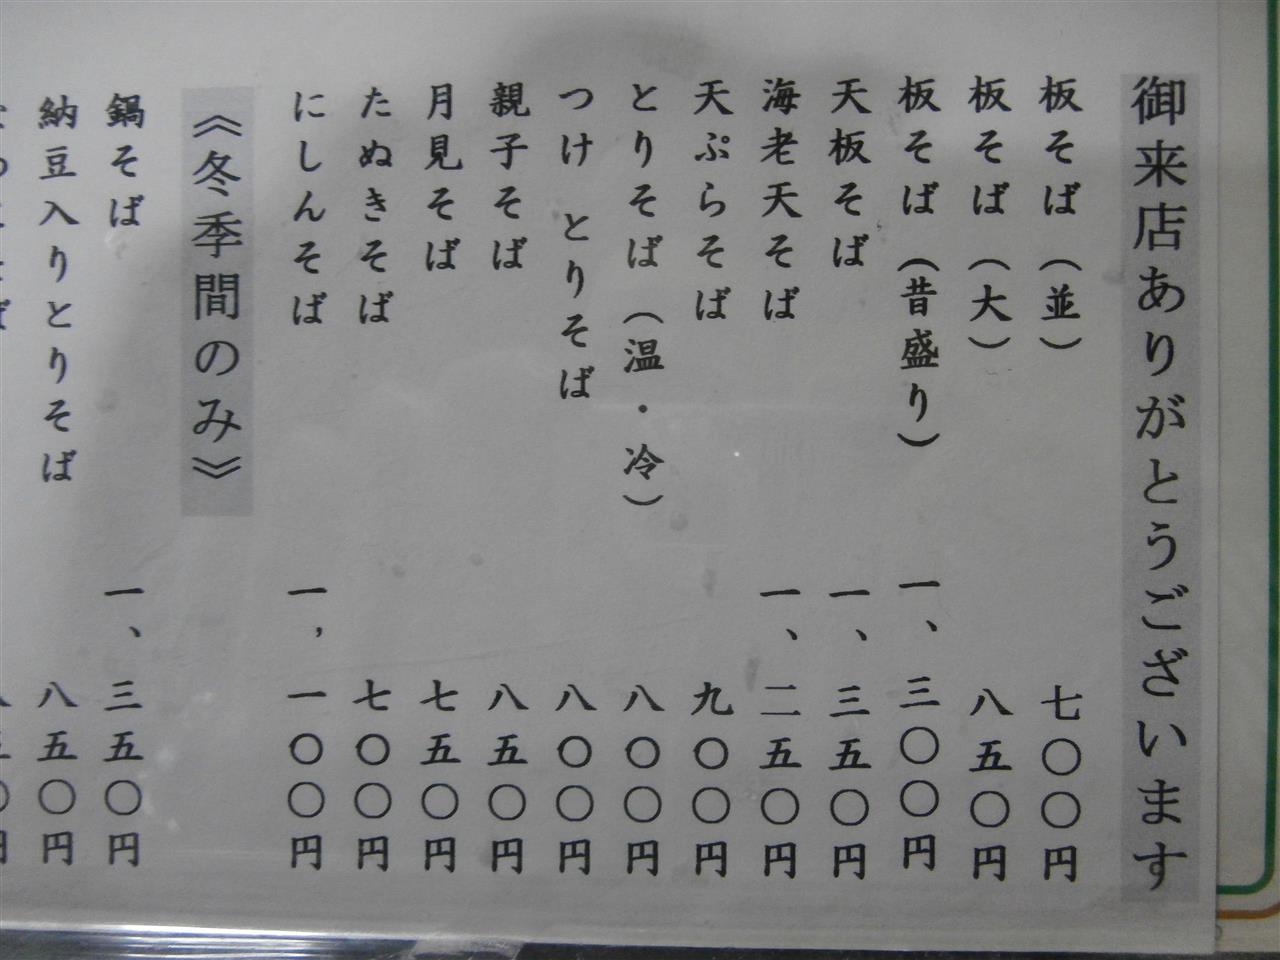 御来店ありがとうございます
板そば（並） 七〇〇円
板そば（大） 八五〇円
板そば（昔盛り） 一、三〇〇円
天板そば 一、三五〇円
海老天そば 一、二五〇円
天ぷらそば 九〇〇円
とりそば（温・冷） 八〇〇円
つけ とりそば 八〇〇円
親子そば 八五〇円
月見そば 七五〇円
たぬきそば 七〇〇円
にしんそば 一，一〇〇円
《冬季間のみ》
鍋そば 一、三五〇円
納豆入りとりそば 八五〇円